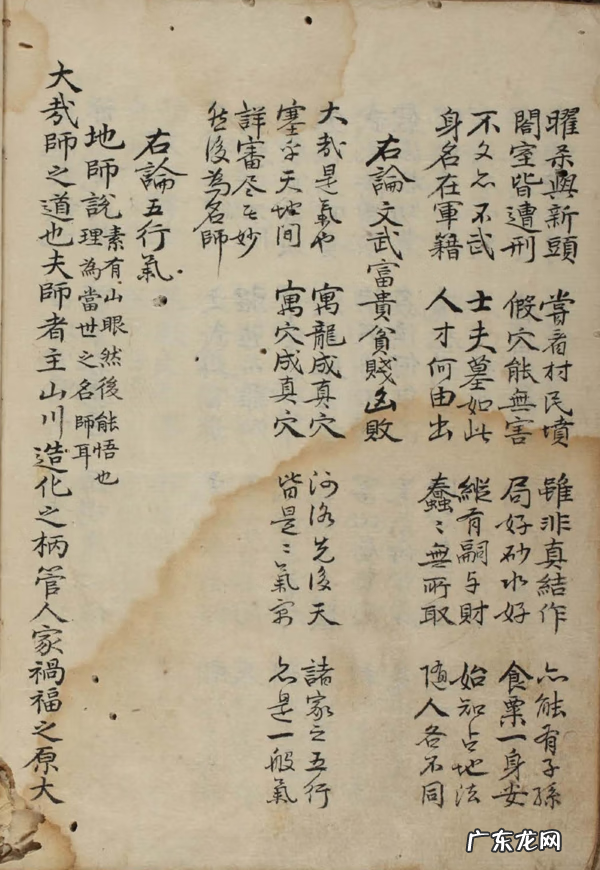 曜杀與新頭 嘗看村民墳 雖非真結作 亦能有子孫
閤室皆遭刑 假穴能無害 局好砂水好 食粟一身安
不文亦不武 士夫墓如此 縱有嗣与財 始知占地法
身名在軍籍 人才何由出 蠢〻無所取 随人各不同
右論文武富貴貧賤凶敗
大哉是氣也 寓龍成真穴 河洛先後天 諸家之五行
塞乎天地间 寓穴成真穴 皆是〻氣寓 亦是一般氣
詳審尽其妙
然後為名師
右論五行氣
地師說 素有山眼然後能悟也
理為當世之名師耳
大哉師之道也夫師者主山川造化之柄管人家禍福之原大
广东龙网